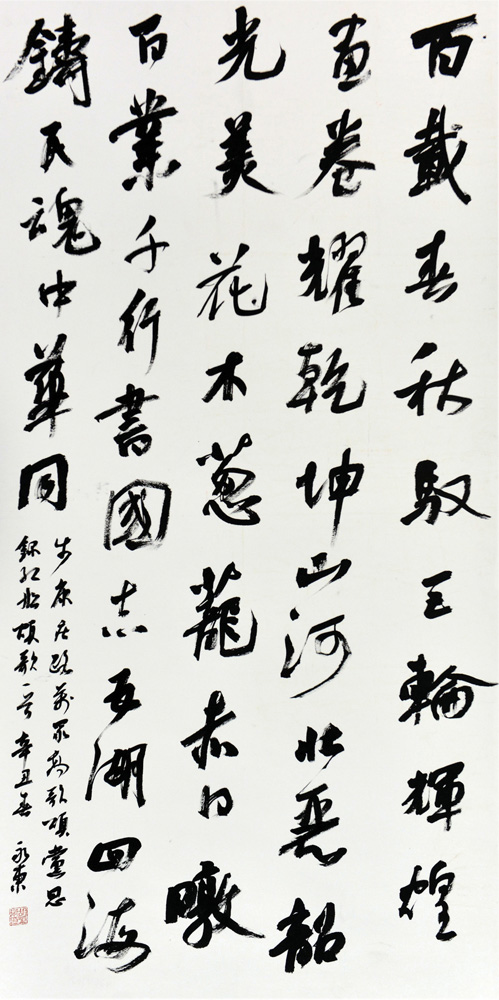 百載春秋馭巨輪輝煌
画卷耀乾坤山河壯麗韶
光美花木葱蘢赤日暾
百業千行書國志五湖四海
鑄民魂中華同
步康莊路萬眾高歌頌黨恩
錄紅船頌歌一首 辛丑春 永東